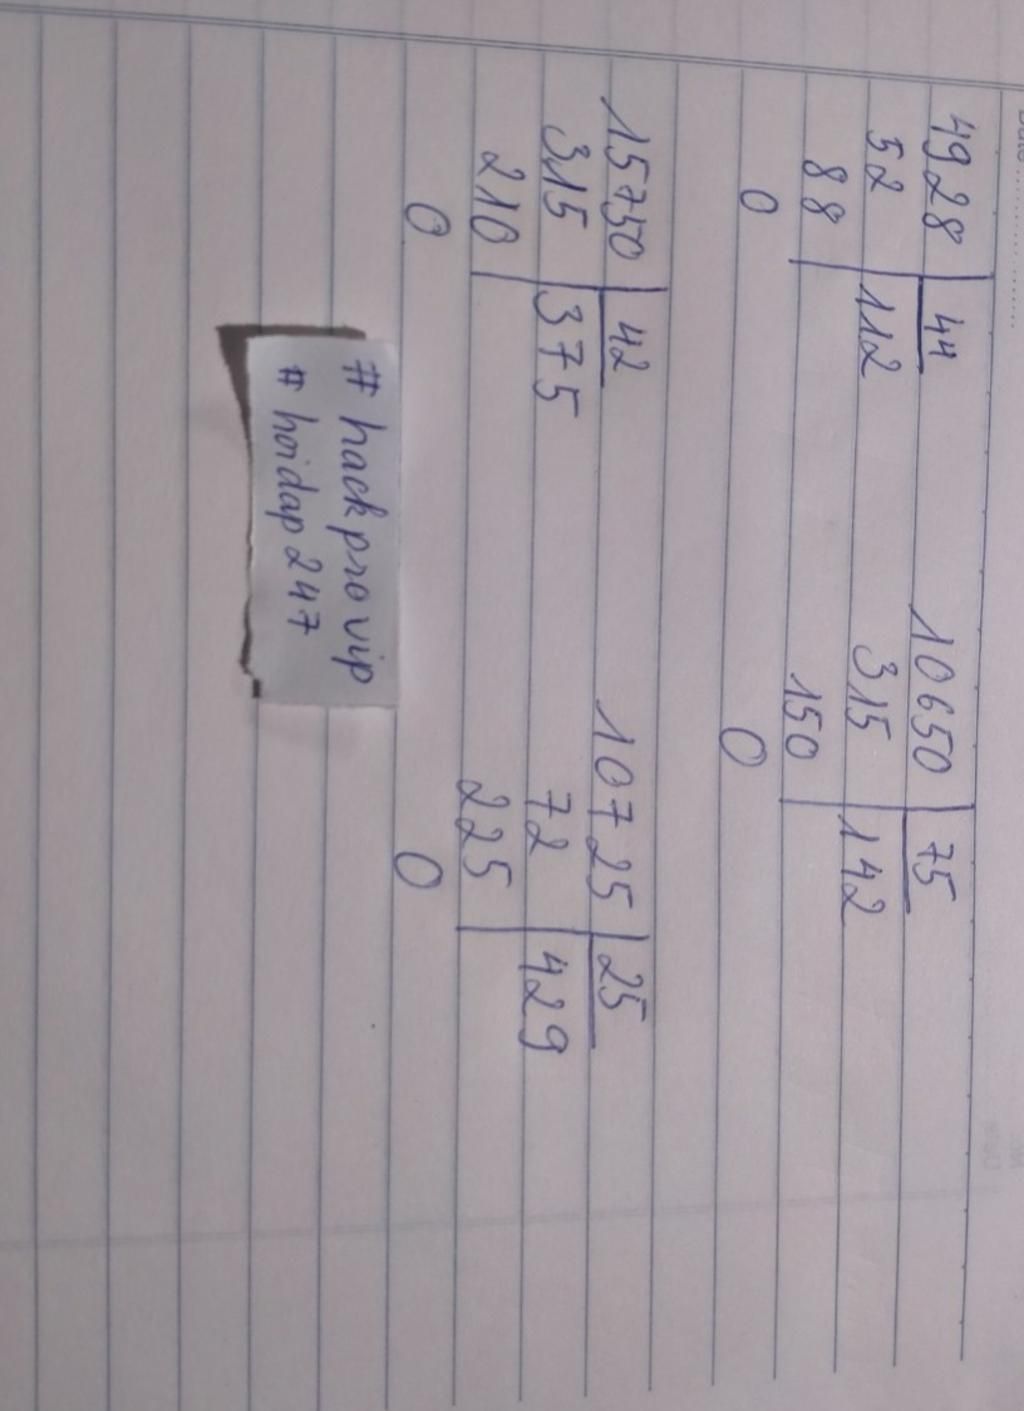 Date ..................
4928 44 10650 75
52 112 315 142
88 150
0 0
15750 42 10725 25
315 375 72 429
210 225
0 0
# hack pro vip
# hoidap 247